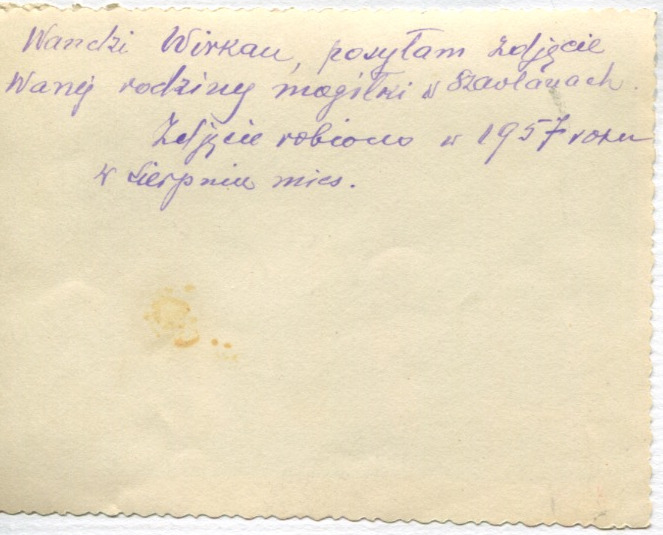 Wandzi Wirkau, posyłam zdjęcie
Waszej rodziny mogiłki w
Zdjęcie robiono w 1957 roku
w Sierpniu mies.